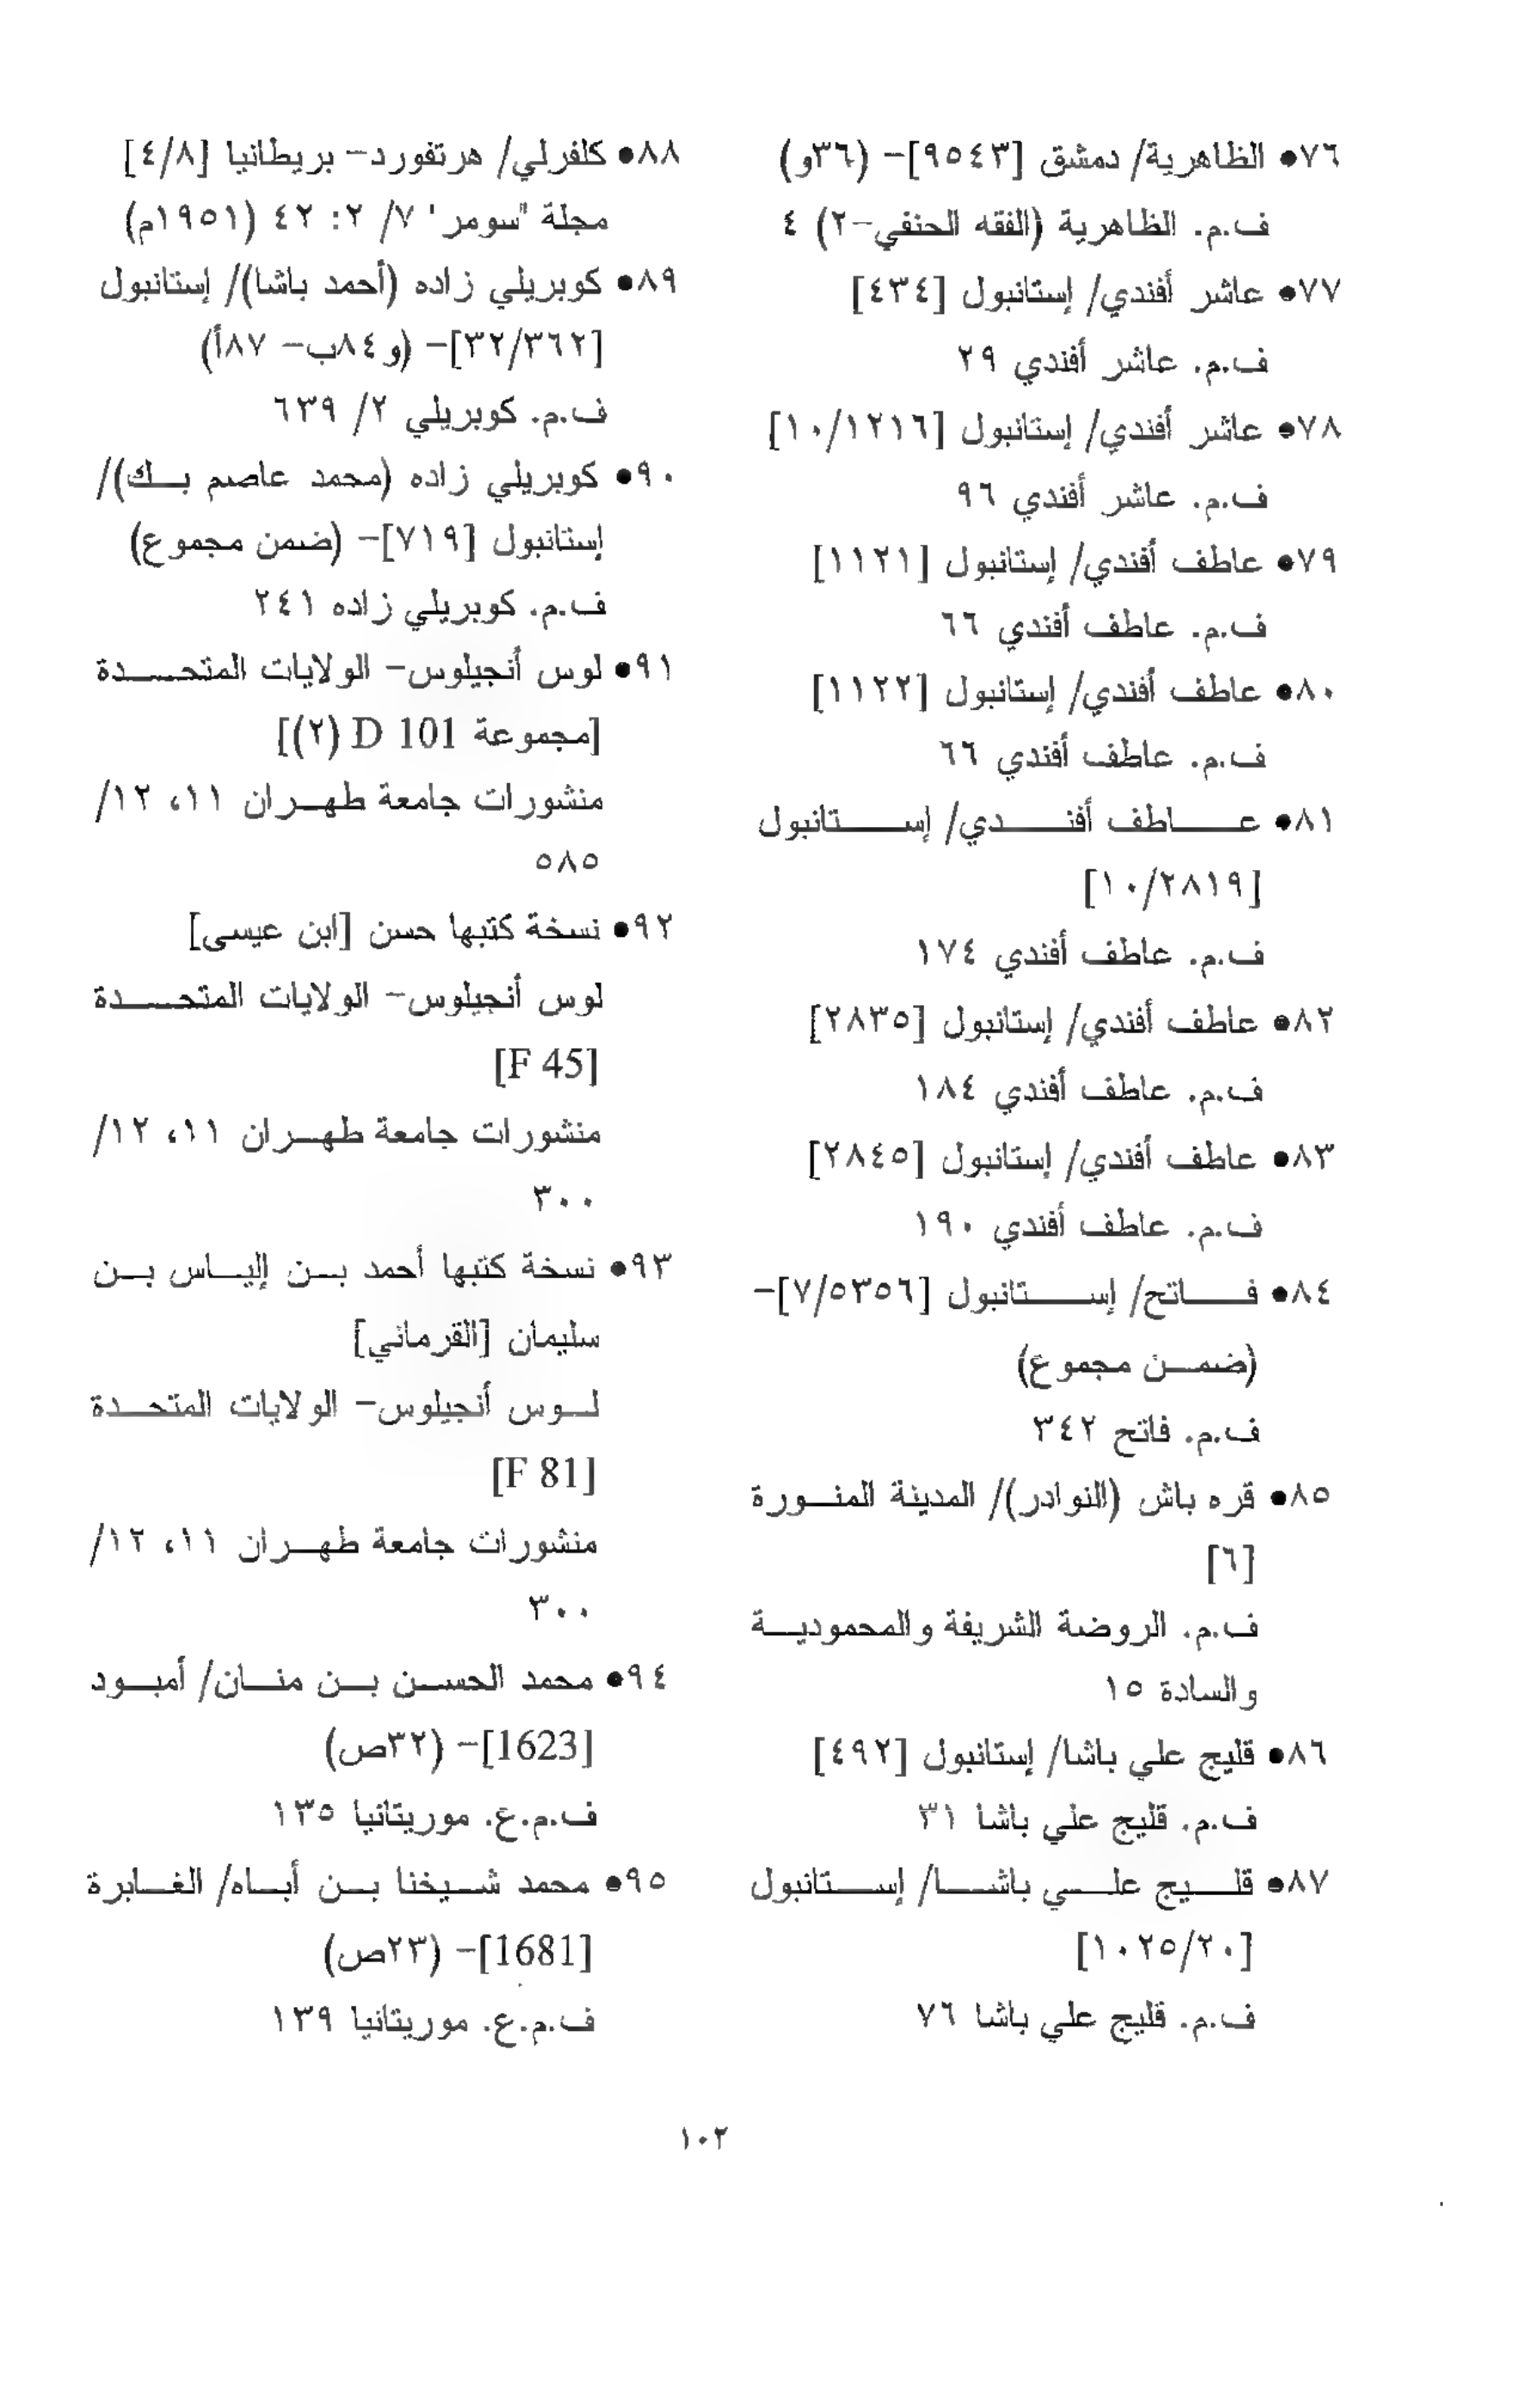 ٧٦● الظاهرية/ دمشق [٩٥٤٣]- (٣٦و)
ف.م. الظاهرية (الفقه الحنفي-٢) ٤
٧٧● عاشر أفندي/ إستانبول [٤٣٤]
ف.م. عاشر أفندي ٢٩
٧٨● عاشر أفندي/ إستانبول [١٠/١٢١٦]
ف.م. عاشر أفندي ٩٦
٧٩● عاطف أفندي/ إستانبول [١١٢١]
ف.م. عاطف أفندي ٦٦
٨٠● عاطف أفندي/ إستانبول [١١٢٢]
ف.م. عاطف أفندي ٦٦
٨١● عاطف أفندي/ إستانبول
[١٠/٢٨١٩]
ف.م. عاطف أفندي ١٧٤
٨٢● عاطف أفندي/ إستانبول [٢٨٣٥]
ف.م. عاطف أفندي ١٨٤
٨٣● عاطف أفندي/ إستانبول [٢٨٤٥]
ف.م. عاطف أفندي ١٩٠
٨٤● فاتح/ إستانبول [٧/٥٣٥٦]-
(ضمن مجموع)
ف.م. فاتح ٣٤٢
٨٥● قره باش (النوادر)/ المدينة المنورة
[٦]
ف.م. الروضة الشريفة والمحمودية
والسادة ١٥
٨٦● قليج علي باشا/ إستانبول [٤٩٢]
ف.م. قليج علي باشا ٣١
٨٧● قليج علي باشا/ إستانبول
[١٠٢٥/٢٠]
ف.م. قليج علي باشا ٧٦
٨٨● كلفرلي/ هرتفورد- بريطانيا [٤/٨]
مجلة "سومر" ٧/ ٢: ٤٢ (١٩٥١م)
٨٩● كوبريلي زاده (أحمد باشا)/ إستانبول
[٣٢/٣٦٢]- (و٨٤ب- ٨٧أ)
ف.م. كوبريلي ٢/ ٦٣٩
٩٠● كوبريلي زاده (محمد عاصم بك)/
إستانبول [٧١٩]- (ضمن مجموع)
ف.م. كوبريلي زاده ٢٤١
٩١● لوس أنجيلوس- الولايات المتحدة
[مجموعة D 101 (٢)]
منشورات جامعة طهران ١١، ١٢/
٥٨٥
٩٢● نسخة كتبها حسن [ابن عيسى]
لوس أنجيلوس- الولايات المتحدة
[F 45]
منشورات جامعة طهران ١١، ١٢/
٣٠٠
٩٣● نسخة كتبها أحمد بن إلياس بن
سليمان [القرماني]
لوس أنجيلوس- الولايات المتحدة
[F 81]
منشورات جامعة طهران ١١، ١٢/
٣٠٠
٩٤● محمد الحسن بن منان/ أمبود
[1623]- (٣٢ص)
ف.م.ع. موريتانيا ١٣٥
٩٥● محمد شيخنا بن أباه/ الغابرة
[1681]- (٢٣ص)
ف.م.ع. موريتانيا ١٣٩
١٠٢